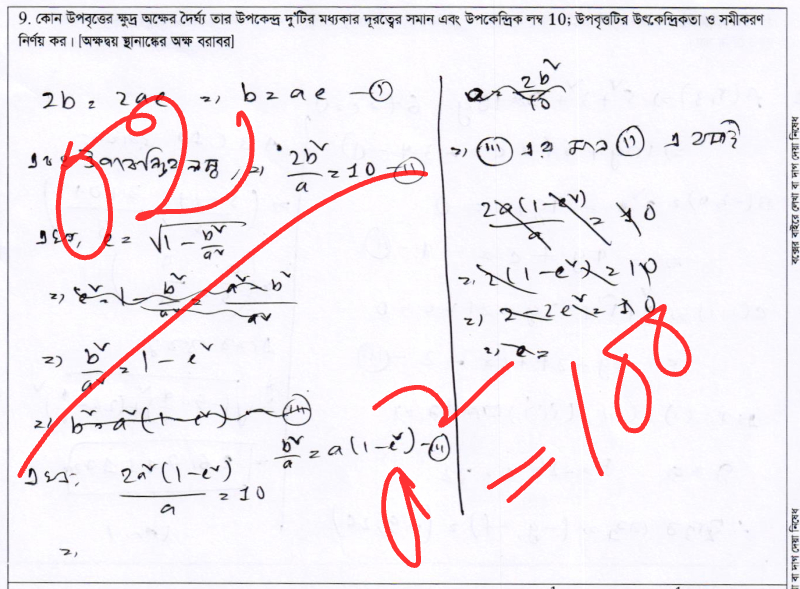 9. কোন উপবৃত্তের ক্ষুদ্র অক্ষের দৈর্ঘ্য তার উপকেন্দ্র দু'টির মধ্যকার দূরত্বের সমান এবং উপকেন্দ্রিক লম্ব 10; উপবৃত্তটির উৎকেন্দ্রিকতা ও সমীকরণ
নির্ণয় কর। [অক্ষদ্বয় স্থানাঙ্কের অক্ষ বরাবর]
2b = 2ae => b = ae —(i)
এবং উপকেন্দ্রিক লম্ব, => 2b²/a = 10 —(ii)
এখন, e = √(1 - b²/a²)
=> e² = 1 - b²/a² = a² - b²/a²
=> b²/a² = 1 - e²
=> b² = a²(1 - e²) —(iii)
b²/a = a(1 - e²) —(iii)
এখন, 2a²(1 - e²)/a = 10
=>
a = 2b²/10
=> (iii) এর মান (ii) এ বসাই
2a(1 - e²)/a = 10
=> 2(1 - e²) = 10
=> 2 - 2e² = 10
=> e =
বক্সের বাইরে লেখা বা দাগ দেয়া নিষেধ
বা দাগ দেয়া নিষেধ